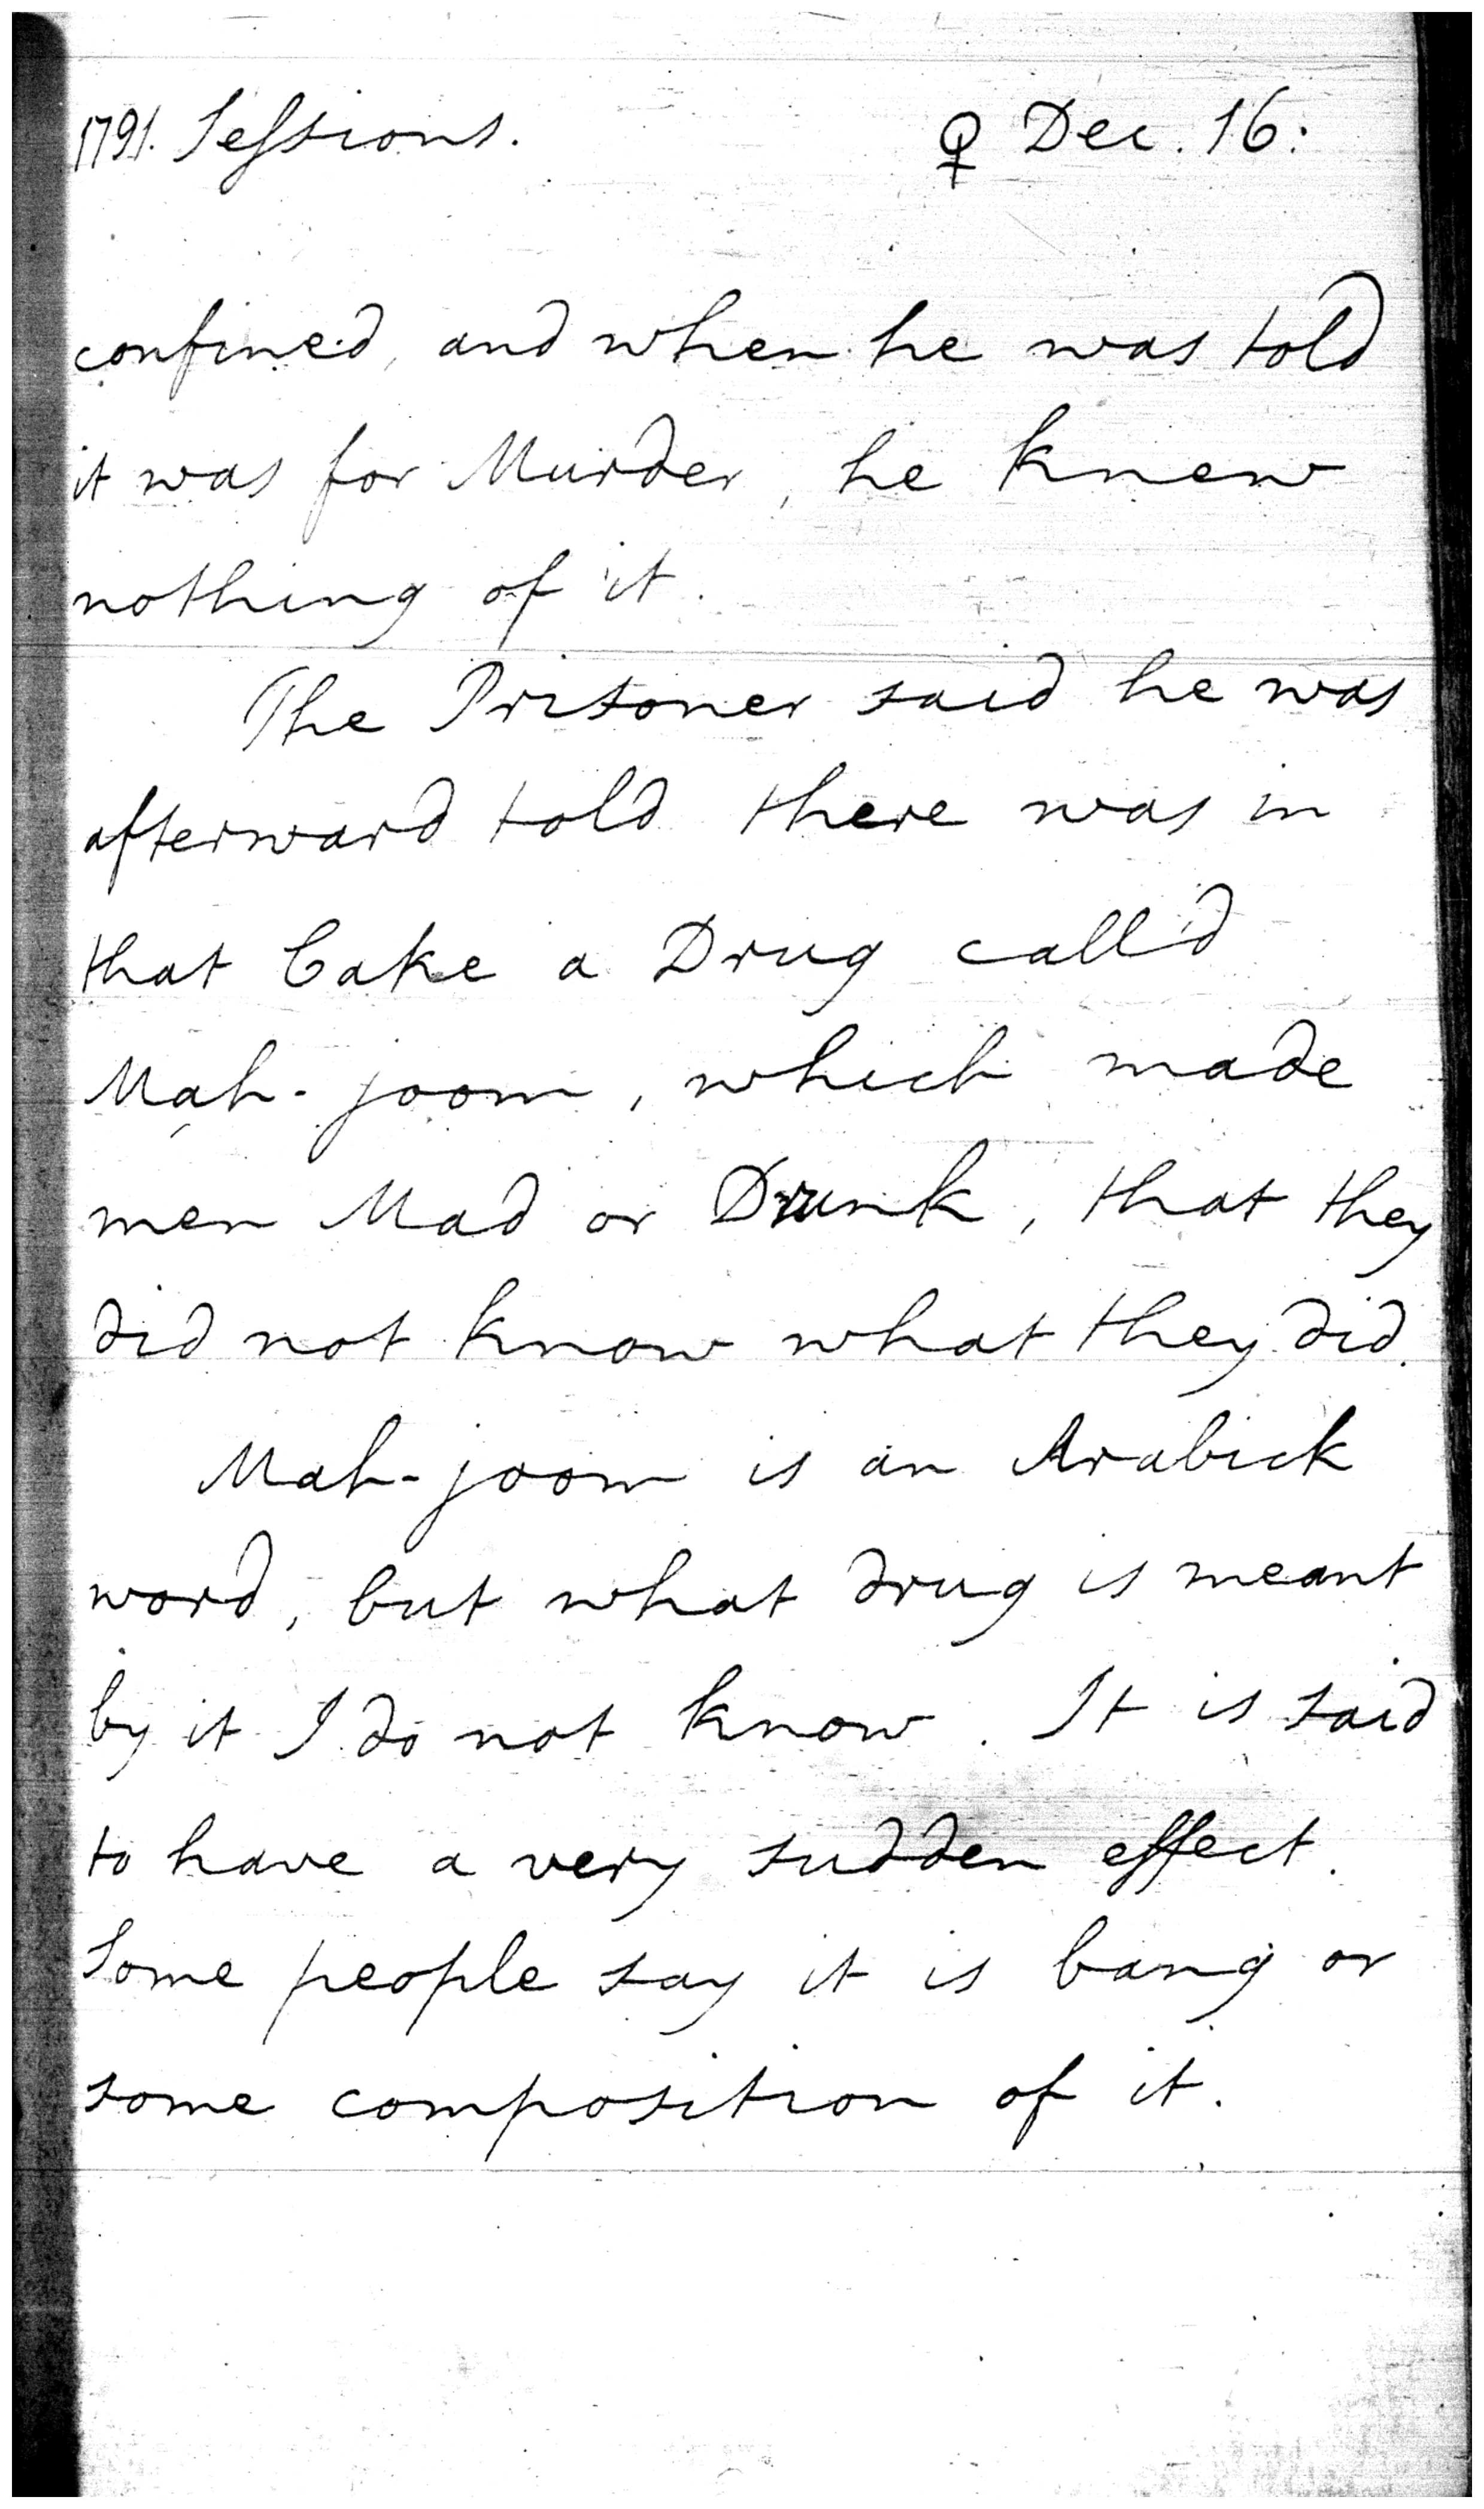 1791. Sessions. ♀ Dec. 16:
confined, and when he was told
it was for Murder, he knew
nothing of it.
The Prisoner said he was
afterward told there was in
that Cake a Drug call'd
Mah-joom, which made
men Mad or Drunk, that they
did not know what they did.
Mah-joom is an Arabick
word, but what drug is meant
by it I do not know. It is said
to have a very sudden effect.
Some people say it is bang or
some composition of it.